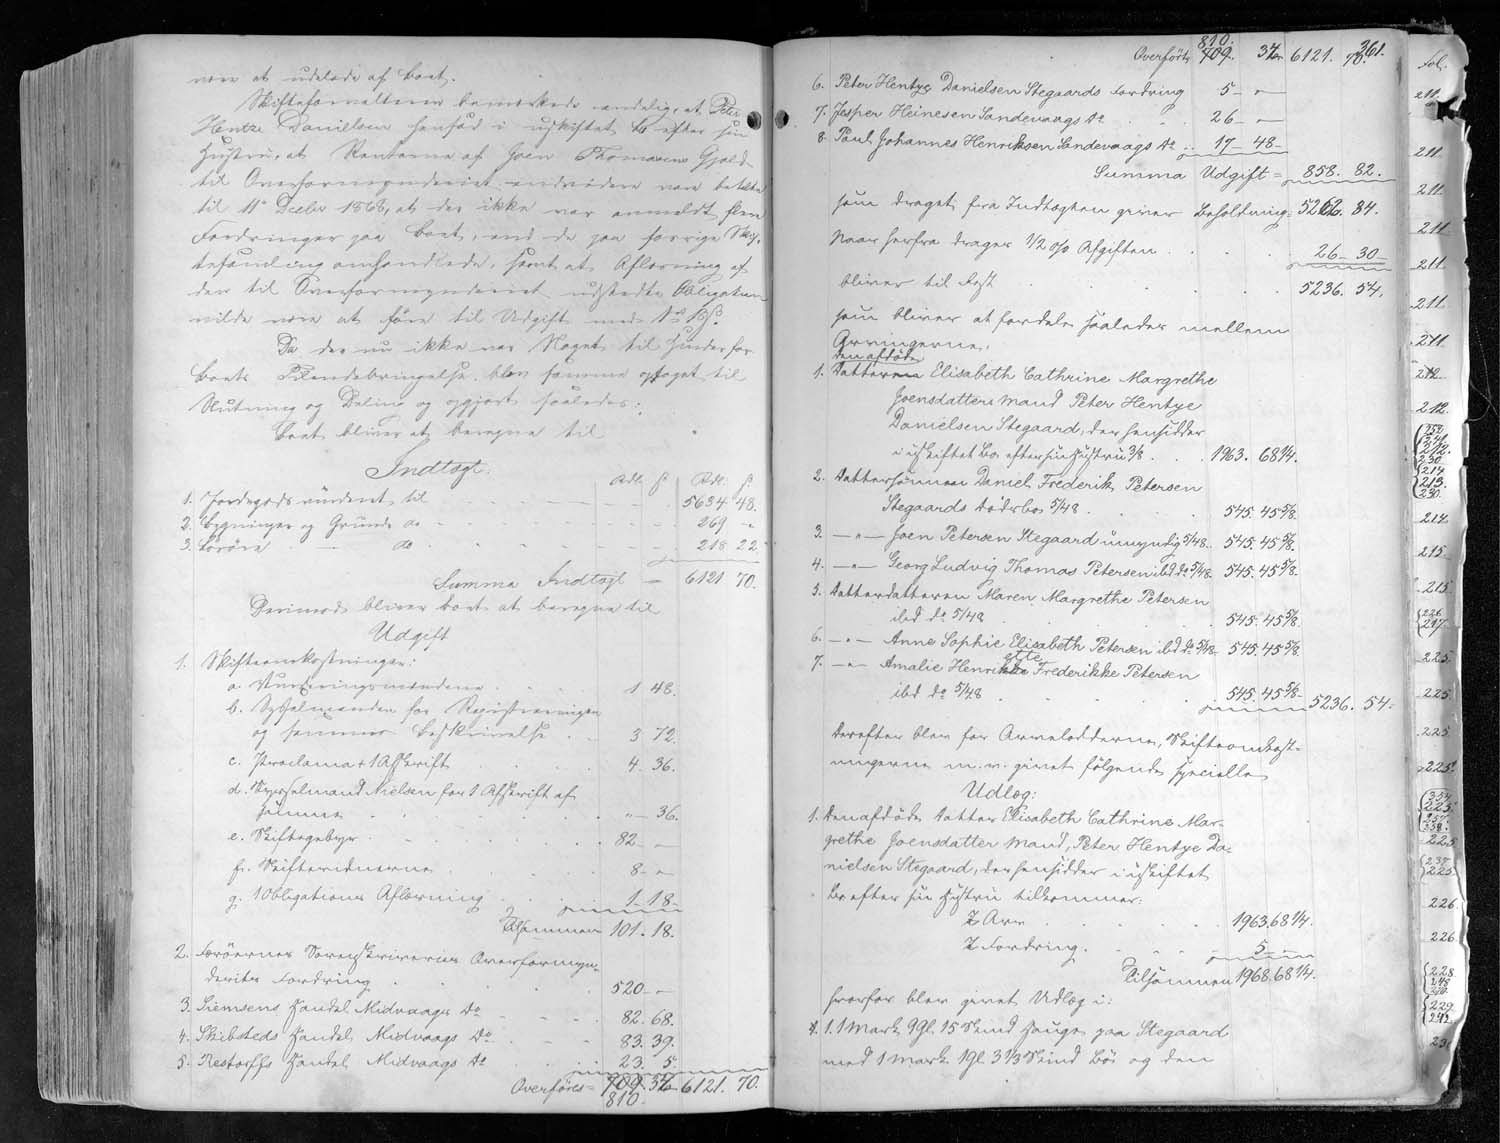 være at udelade af Boet.
Skifteforvalteren bemærkede endelig, at Peter
Hentze Danielsen hensad i uskiftet Bo efter sin
Hustru, at Renterne af Joen Thomasens Gjæld
til Overformynderiet endvidere vare betalte
til 11te Decbr 1868, at der ikke var anmeldt flere
Fordringer paa Boet, end de paa forrige Skif-
tesamling omhandlede, samt at Aflæsning af
den til Overformynderiet udstedte Obligation
vilde være at føre til Udgift med 1 rd 18 s.
Da der nu ikke var Noget til Hinder for
Boets Tilendebringelse, blev samme optaget til
Slutning og Deling og opgjort saaledes:
Boet bliver at beregne til
Indtægt.
Rdl. s Rdl. s
1. Jordegods vurderet til 5634 48.
2. Bygninger og Grunde do 269 "
3. Løsøre do 218 22.
Summa Indtægt = 6121 70.
Derimod bliver Boet at beregne til
Udgift
1. Skifteomkostninger:
a. Vurderingsmændene 1 48.
b. Sysselmanden for Registreringen
og sammes Beskrivelse 3 72.
c. Proclama + 1 Afskrift 4. 36.
d. Sysselmand Nielsen for 1 Afskrift af
" 36.
e. Skiftegebyr 82 "
f. Skiftevidnerne 8 "
g. 1 Obligations Aflæsning 1 18
Tilsammen 101. 18.
2. Færøernes Sorenskriveries Overformyn-
deries Fordring 520 "
3. Siemsens Handel Midvaags Do 82. 68.
4. Skibsteds Handel Midvaags Do 83. 39.
5. Restorffs Handel Midvaags Do 23. 5.
Overføres = 709. 37 6121. 70.
810
810. 361.
Overført 709. 37 6121. 70.
6. Peter Hentze Danielsen Stegaards Fordring 5 "
7. Jesper Heinesen Sandevaags Do 26 "
8. Poul Johannes Henriksen Sandevaags Do 17 48
Summa Udgift = 858. 82.
som draget fra Indtægten giver Beholdning = 5262. 84.
Naar herfra drages 1/2 o/o Afgiften 26 30
bliver til Rest 5236. 54.
som bliver at fordele saaledes mellem
Arvingerne.
den afdøde
1. Datteren Elisabeth Cathrine Margrethe
Joensdatters Mand Peter Hentze
Danielsen Stegaard, der hensidder
i uskiftet Bo efter sin Hustru 3/8 1963. 68 1/4.
2. Dattersønnen Daniel Frederik Petersen
Stegaards Dødsbo 5/48 545. 45 5/8.
3. — " — Joen Petersen Stegaard umyndig 5/48 545. 45 5/8.
4. — " — Georg Ludvig Thomas Petersen ibd do 5/48 545. 45 5/8
5. Datterdatteren Maren Margrethe Petersen
ibd do 5/48 545. 45 5/8.
6. — " — Anne Sophie Elisabeth Petersen ibd do 5/48 545. 45 5/8
ette
7. — " — Amalie Henrikke Frederikke Petersen
ibd do 5/48 545. 45 5/8 5236. 54
Derefter blev for Arvelodderne, Skifteomkost-
ningerne m. v. givet følgende specielle
Udlæg:
1. Den afdøde Datter Elisabeth Cathrine Mar-
grethe Joensdatter Mand, Peter Hentze Da-
nielsen Stegaard, der hensidder i uskiftet
Bo efter sin Hustru tilkommer:
I Arv 1963. 68 1/4.
I Fordring 5 "
Tilsammen 1968. 68 1/4.
hvorfor blev givet Udlæg i:
1. 1 Mark 9 Gl. 15 Skind Hauge paa Stegaard
med 1 Mark 1 Gl. 3 1/3 Skind Bø og den
Fol.
211.
211.
211.
211
211.
211.
211.
212.
212.
212.
230
214
213.
230.
214
215
215
226
217
225.
225
225
225
225
225
237
225
226
226
228
229